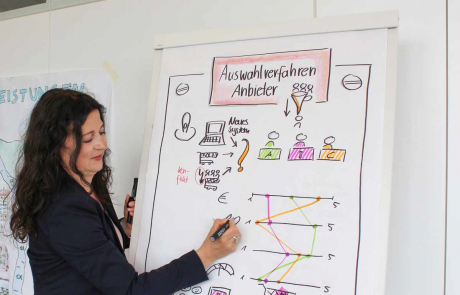 EISTUNGEN
Auswahlverfahren
Anbieter
Neues
System
?
A B C
€
1 5
1 5
1 5
1 5